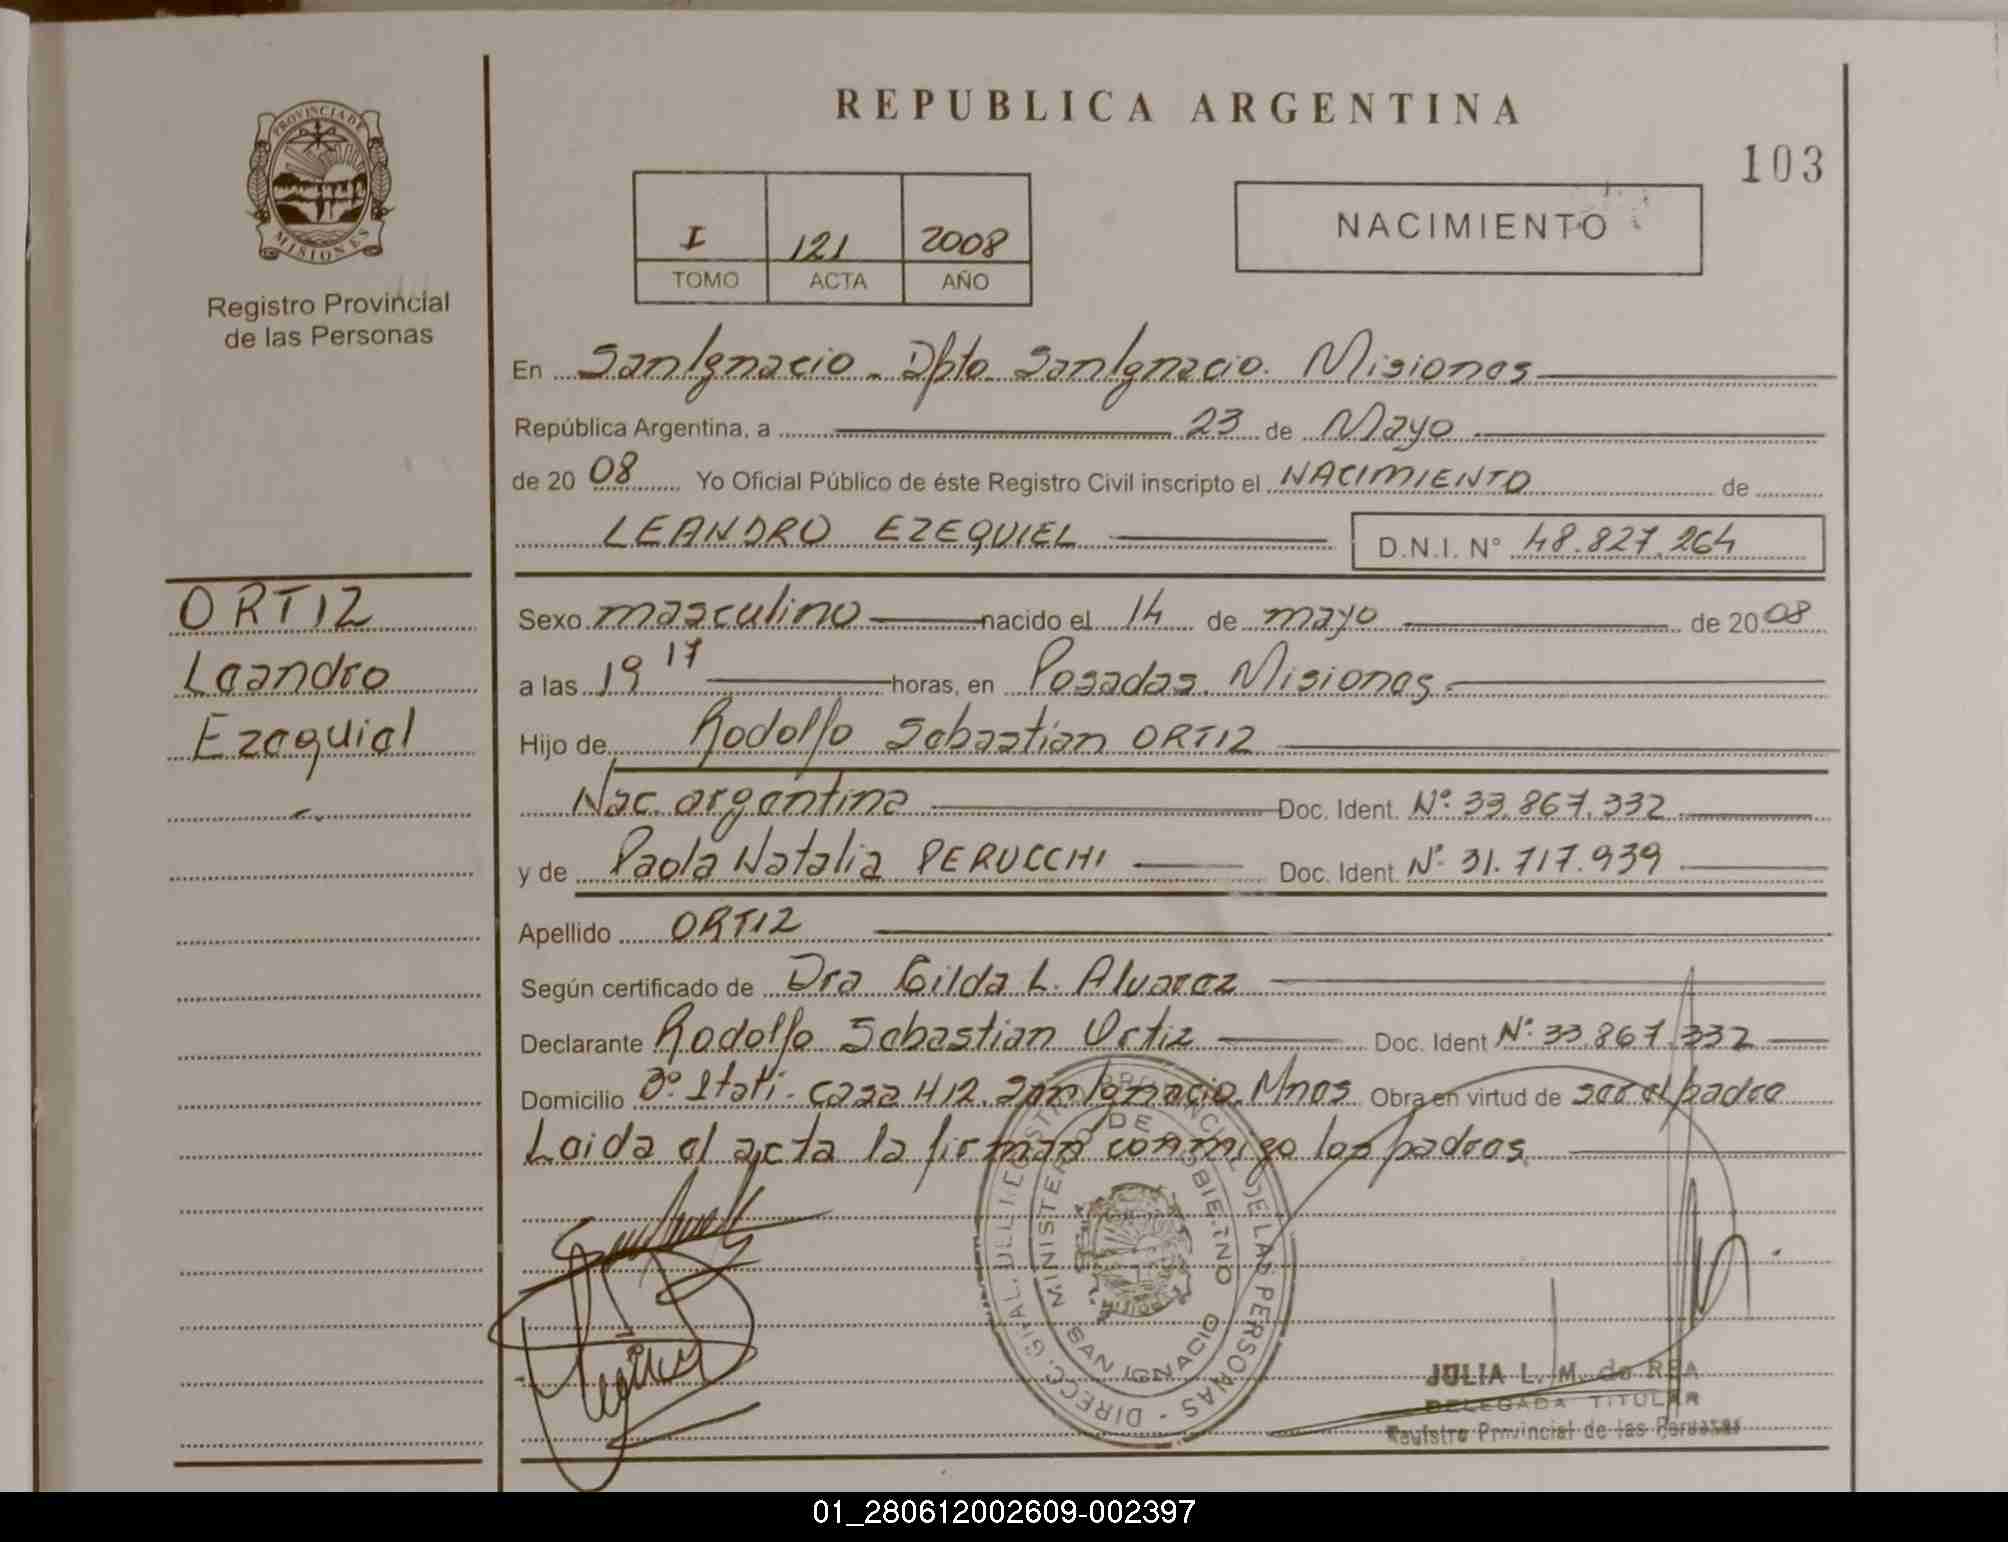 REPUBLICA ARGENTINA
103
PROVINCIA DE MISIONES
Registro Provincial
de las Personas
I 121 2008
TOMO ACTA AÑO
NACIMIENTO
En San Ignacio - Dpto San Ignacio. Misiones
República Argentina, a 23 de Mayo
de 2008 Yo Oficial Público de éste Registro Civil inscripto el NACIMIENTO de
LEANDRO EZEQUIEL D.N.I. N° 48.827.264
ORTIZ
Leandro
Ezequiel
Sexo masculino nacido el 14 de mayo de 2008
a las 19 17 horas, en Posadas. Misiones.
Hijo de Rodolfo Sebastian ORTIZ
Nac. argentina Doc. Ident. N°: 33.867.332
y de Paola Natalia PERUCCHI Doc. Ident. N°: 31.717.939
Apellido ORTIZ
Según certificado de Dra Gilda L. Alvarez
Declarante Rodolfo Sebastian Ortiz Doc. Ident N°: 33.867.332
Domicilio B° Itatí - casa 412. San Ignacio. Mnes Obra en virtud de ser el padre
Leida el acta la firman conmigo los padres.
DIRECC. GRAL. DEL REGISTRO PROVINCIAL DE LAS PERSONAS -
MINISTERIO DE GOBIERNO
MISIONES
SAN IGNACIO
JULIA L. M. de REA
DELEGADA TITULAR
Registro Provincial de las Personas
01_280612002609-002397